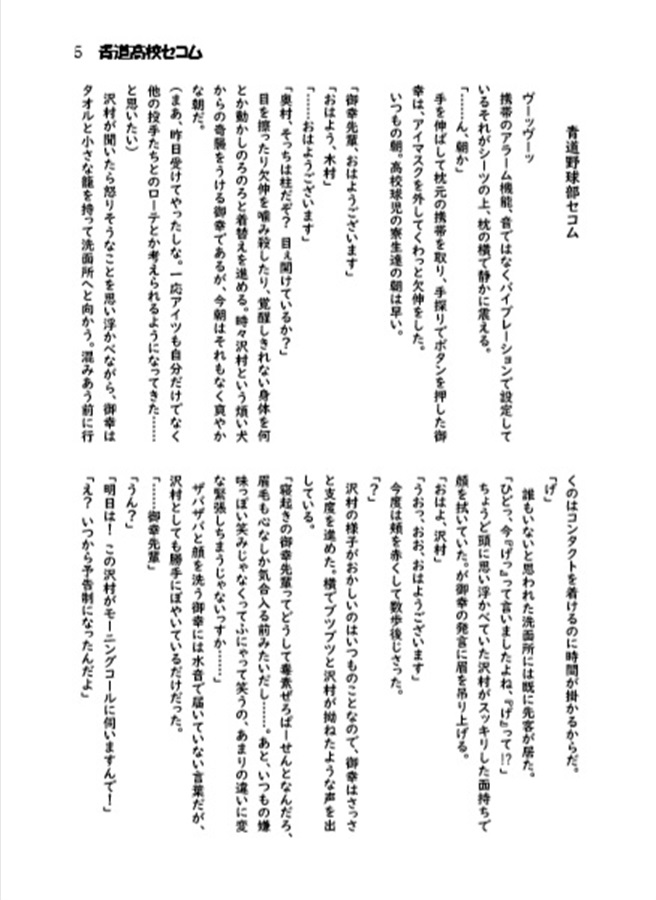 5　青道高校セコム
青道野球部セコム
ヴーッヴーッ
携帯のアラーム機能、音ではなくバイブレーションで設定して
いるそれがシーツの上、枕の横で静かに震える。
「……ん、朝か」
手を伸ばして枕元の携帯を取り、手探りでボタンを押した御
幸は、アイマスクを外してくわっと欠伸をした。
いつもの朝。高校球児の寮生達の朝は早い。
「御幸先輩、おはようございます」
「おはよう、木村」
「……おはようございます」
「奥村、そっちは柱だぞ？　目ぇ開けているか？」
目を擦ったり欠伸を噛み殺したり、覚醒しきれない身体を何
とか動かしのろのろと着替えを進める。時々沢村という煩い犬
からの奇襲をうける御幸であるが、今朝はそれもなく爽やか
な朝だ。
（まあ、昨日受けてやったしな。一応アイツも自分だけでなく
他の投手たちとのローテとか考えられるようになってきた……
と思いたい）
沢村が聞いたら怒りそうなことを思い浮かべながら、御幸は
タオルと小さな籠を持って洗面所へと向かう。混みあう前に行
くのはコンタクトを着けるのに時間が掛かるからだ。
「げ」
誰もいないと思われた洗面所には既に先客が居た。
「ひどっ、今『げっ』って言いましたよね、『げ』って!?」
ちょうど頭に思い浮かべていた沢村がスッキリした面持ちで
顔を拭いていた。が御幸の発言に眉を吊り上げる。
「おはよ、沢村」
「うおっ、おお、おはようございます」
今度は頬を赤くして数歩後じさった。
「？」
沢村の様子がおかしいのはいつものことなので、御幸はさっさ
と支度を進めた。横でブツブツと沢村が拗ねたような声を出
している。
「寝起きの御幸先輩ってどうして毒素ぜろぱーせんとなんだろ、
眉毛も心なしか気合入る前みたいだし……。あと、いつもの嫌
味っぽい笑みじゃなくってふにゃって笑うの、あまりの違いに変
な緊張しちまうじゃないっすか……」
ザバザバと顔を洗う御幸には水音で届いていない言葉だが、
沢村としても勝手にぼやいているだけだった。
「……御幸先輩」
「うん？」
「明日は！　この沢村がモーニングコールに伺いますんで！」
「え？　いつから予告制になったんだよ」